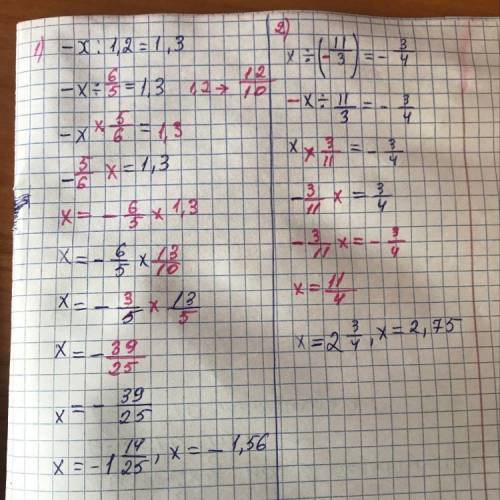 1) -x : 1,2 = 1,3
-x ÷ 6/5 = 1,3   1,2 → 12/10
-x × 5/6 = 1,3
-5/6 x = 1,3
x = - 6/5 × 1,3
x = - 6/5 × 13/10
x = - 3/5 × 13/5
x = - 39/25
x = - 39/25
x = -1 14/25, x = -1,56
2) x ÷ (-11/3) = - 3/4
-x ÷ 11/3 = - 3/4
x × 3/11 = - 3/4
-3/11 x = 3/4
-3/11 x = - 3/4
x = 11/4
x = 2 3/4, x = 2,75